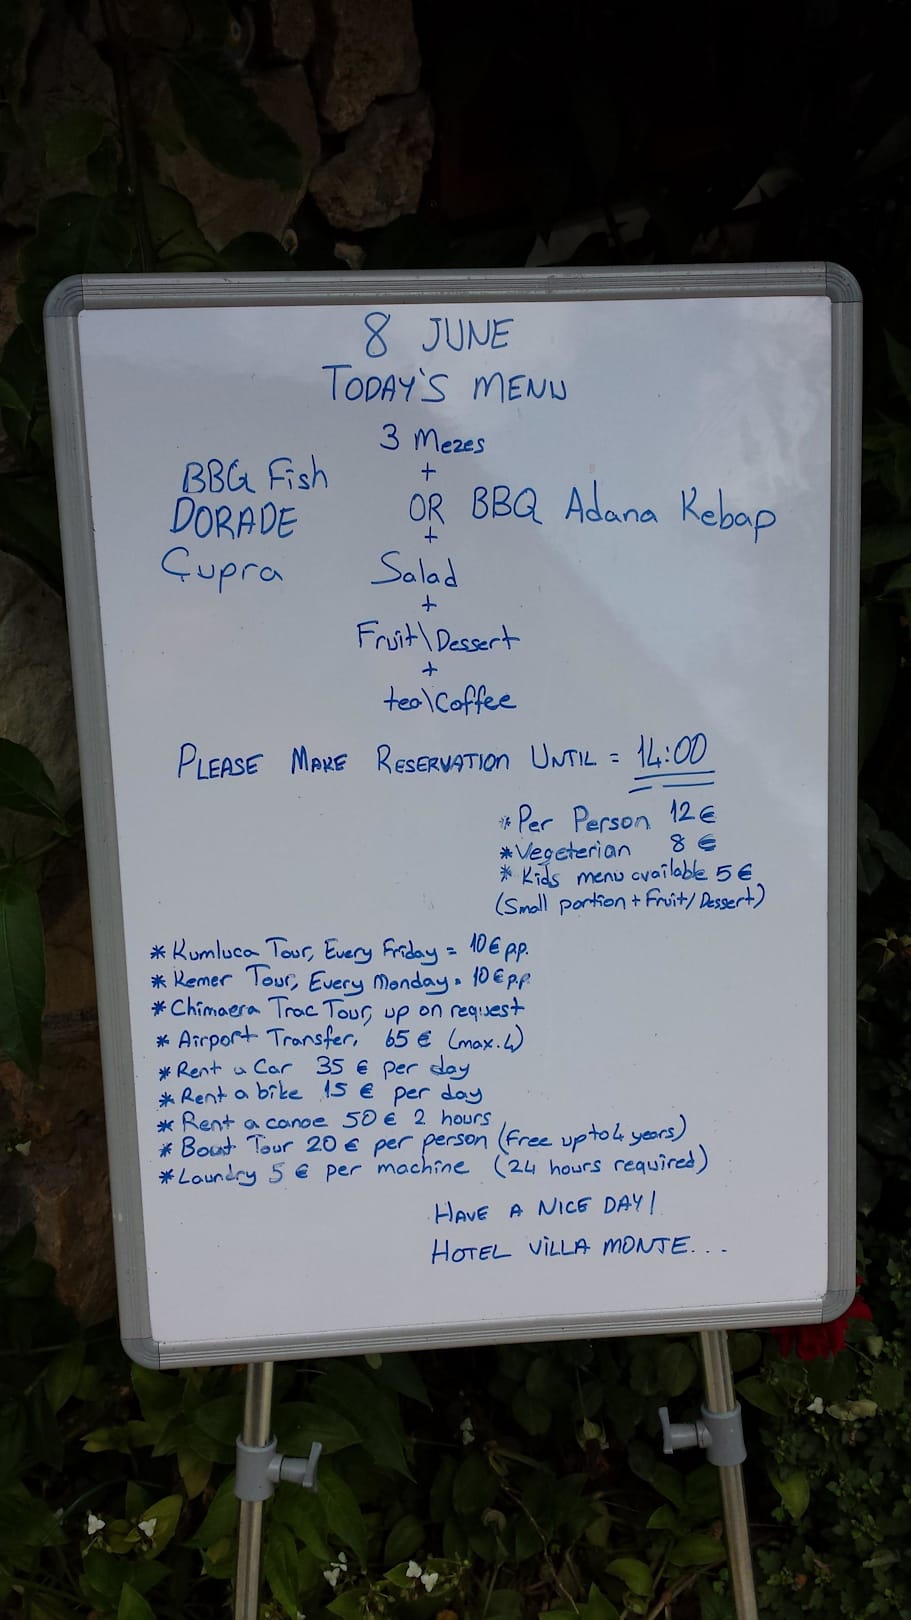 8 JUNE
TODAY'S MENU
3 Mezes
+
BBQ Fish
DORADE
Çupra
OR BBQ Adana Kebap
+
Salad
+
Fruit\Dessert
+
tea\Coffee
PLEASE MAKE RESERVATION UNTIL = 14:00
* Per Person 12 €
* Vegeterian 8 €
* Kids menu available 5 €
(Small portion + Fruit/Dessert)
* Kumluca Tour, Every Friday = 10 € pp.
* Kemer Tour, Every Monday = 10 € p.p.
* Chimaera Trac Tour, up on request
* Airport Transfer, 65 € (max. 4)
* Rent a Car 35 € per day
* Rent a bike 15 € per day
* Rent a canoe 50 € 2 hours
* Boat Tour 20 € per person (Free up to 4 years)
* Laundry 5 € per machine (24 hours required)
HAVE A NICE DAY!
HOTEL VİLLA MONTE...